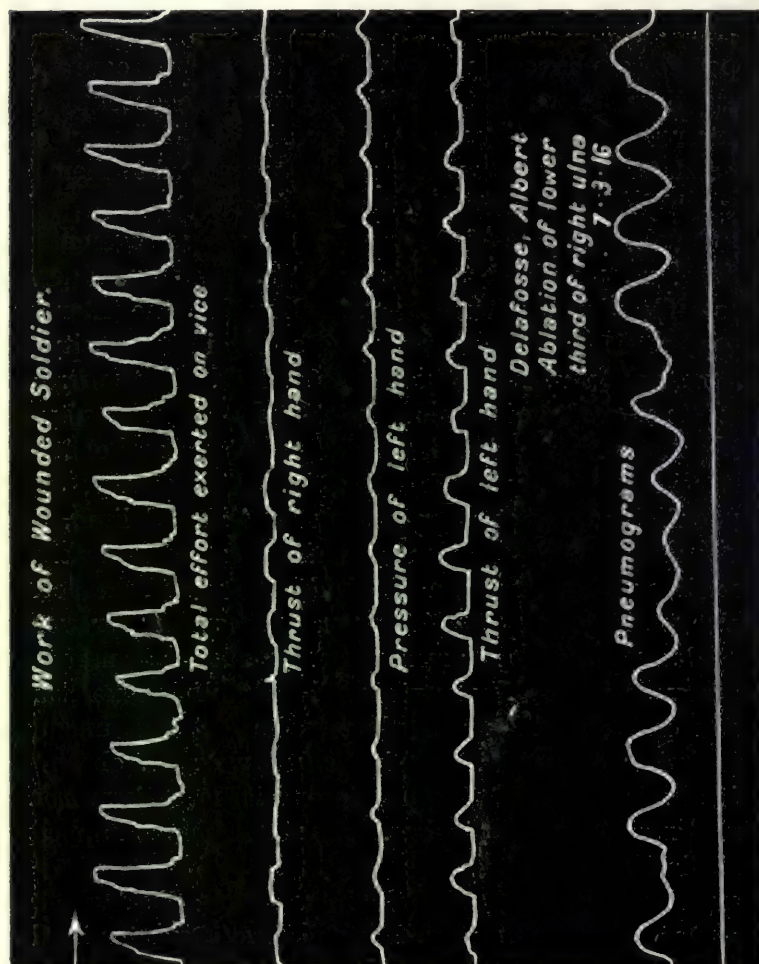 Work of Wounded Soldier.
Total effort exerted on vice
Thrust of right hand
Pressure of left hand
Thrust of left hand
Delafosse, Albert
Ablation of lower
third of right ulna
7·3·16
Pneumograms